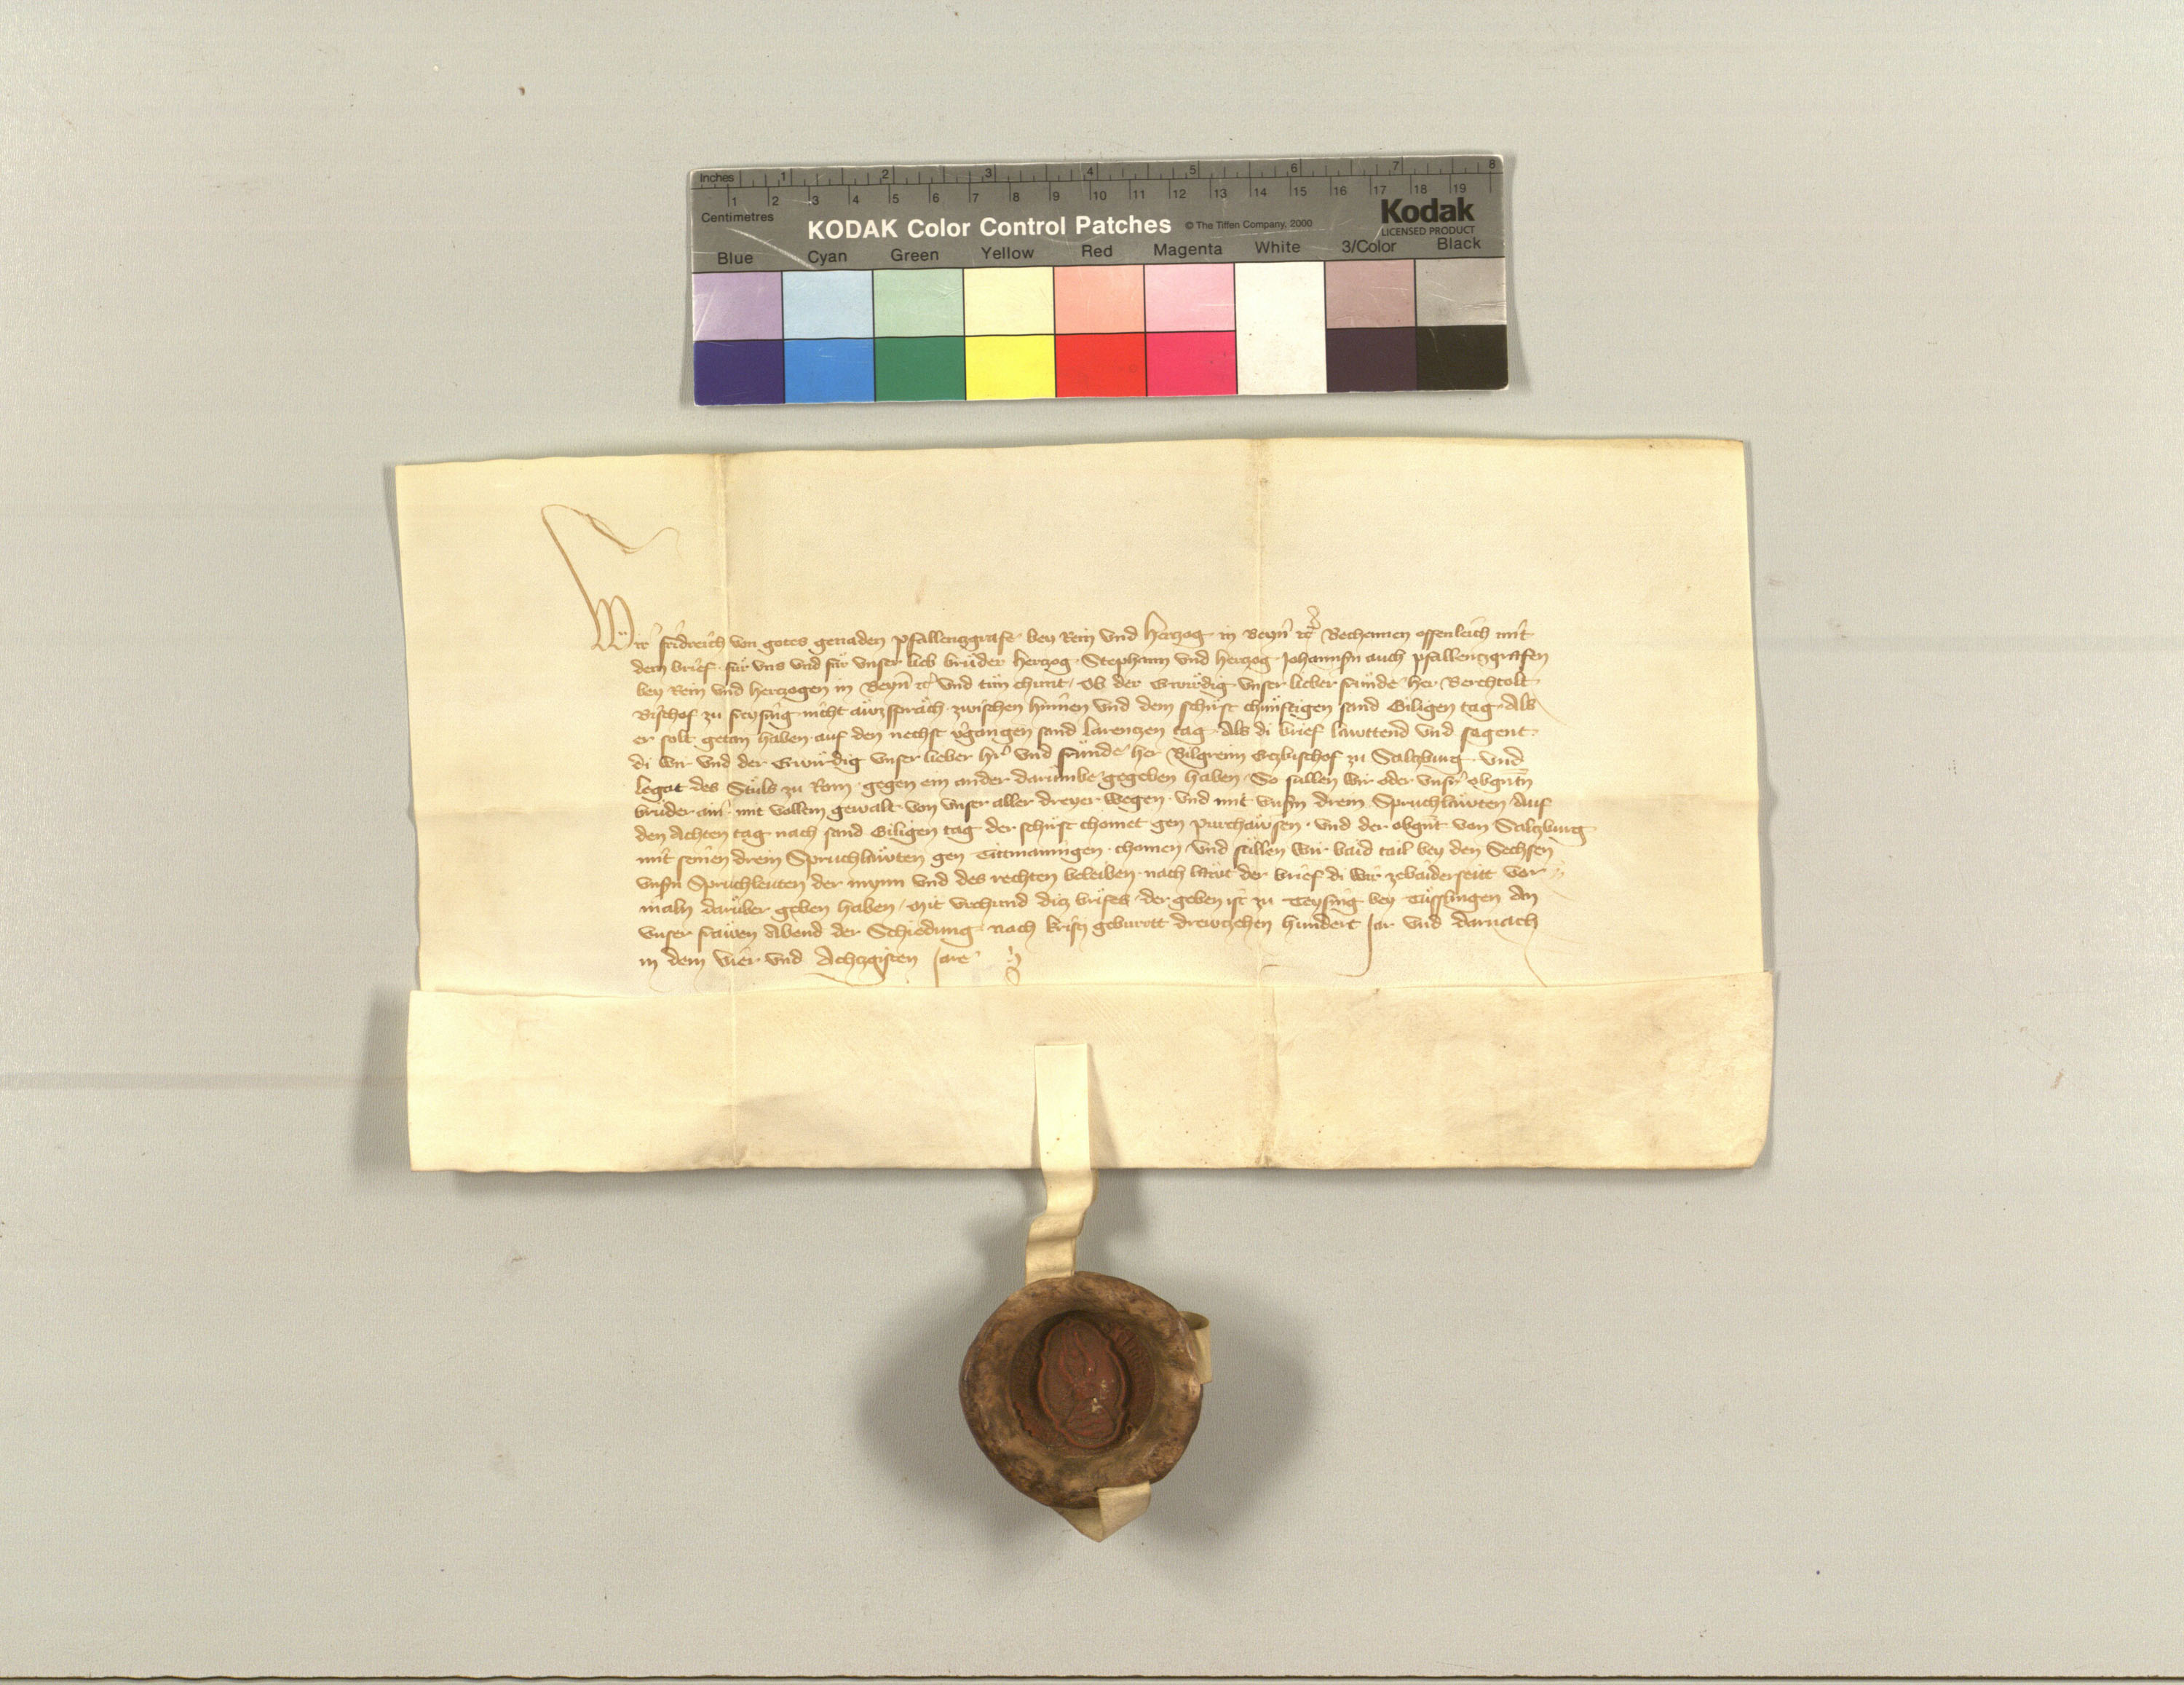 Inches 1 2 3 4 5 6 7 8
1 2 3 4 5 6 7 8 9 10 11 12 13 14 15 16 17 18 19
Centimetres
KODAK Color Control Patches © The Tiffen Company, 2000 Kodak
LICENSED PRODUCT
Blue Cyan Green Yellow Red Magenta White 3/Color Black
Wir fridreich von gotes genaden pfallenczgrafe bey Rein vnd Herczog in Beyrn etc Bechennen offenleich mit
dem brief für vns vnd für vnser lieb brüder herczog Stephann vnd herczog Johannsen auch pfallenczgrafen
bey Rein vnd herczogen in Beyrn etc vnd tün chunt / Ob der Erwirdig vnser lieber fründe her Berchtolt
Bischof zu freysing nicht aüzspräch zwischen hinnen vnd dem schirst chünftigen sand Giligen tag Als
er solt getan haben auf den nechst vergangen sand larenczen tag Als di brief lawttend vnd sagent
di wir vnd der Erwirdig vnser lieber her vnd fründe her Bilgreim Erczbischof zu Salczburg vnd
legat des Stüls zu Rom gegen ein ander darümbe gegeben haben So süllen wir oder vnser obgnten
brüder ain mit vollem gewalt von vnser aller dreyer wegen vnd mit vnsern drein Spruchläwten Auf
den Achten tag nach sand Giligen tag der schirst chomet gen purchawsen vnd der obgnt von Salczburg
mit seinen drein Spruchläwten gen Tittmanningen chomen vnd süllen wir baid tail bey den Sechsen
vnsern Spruchleuten der mynn vnd des rechten beleiben nach lawt der brief di wir zebaiderseitt vor
maln darüber geben haben / Mit vrchund dicz briefes der geben ist zu Teysing bey Tüsslingen An
vnser frawen Abend der Schiedung nach kristi geburtt drewczehen hundert Jar vnd darnach
in dem vier vnd Achczgisten Jare